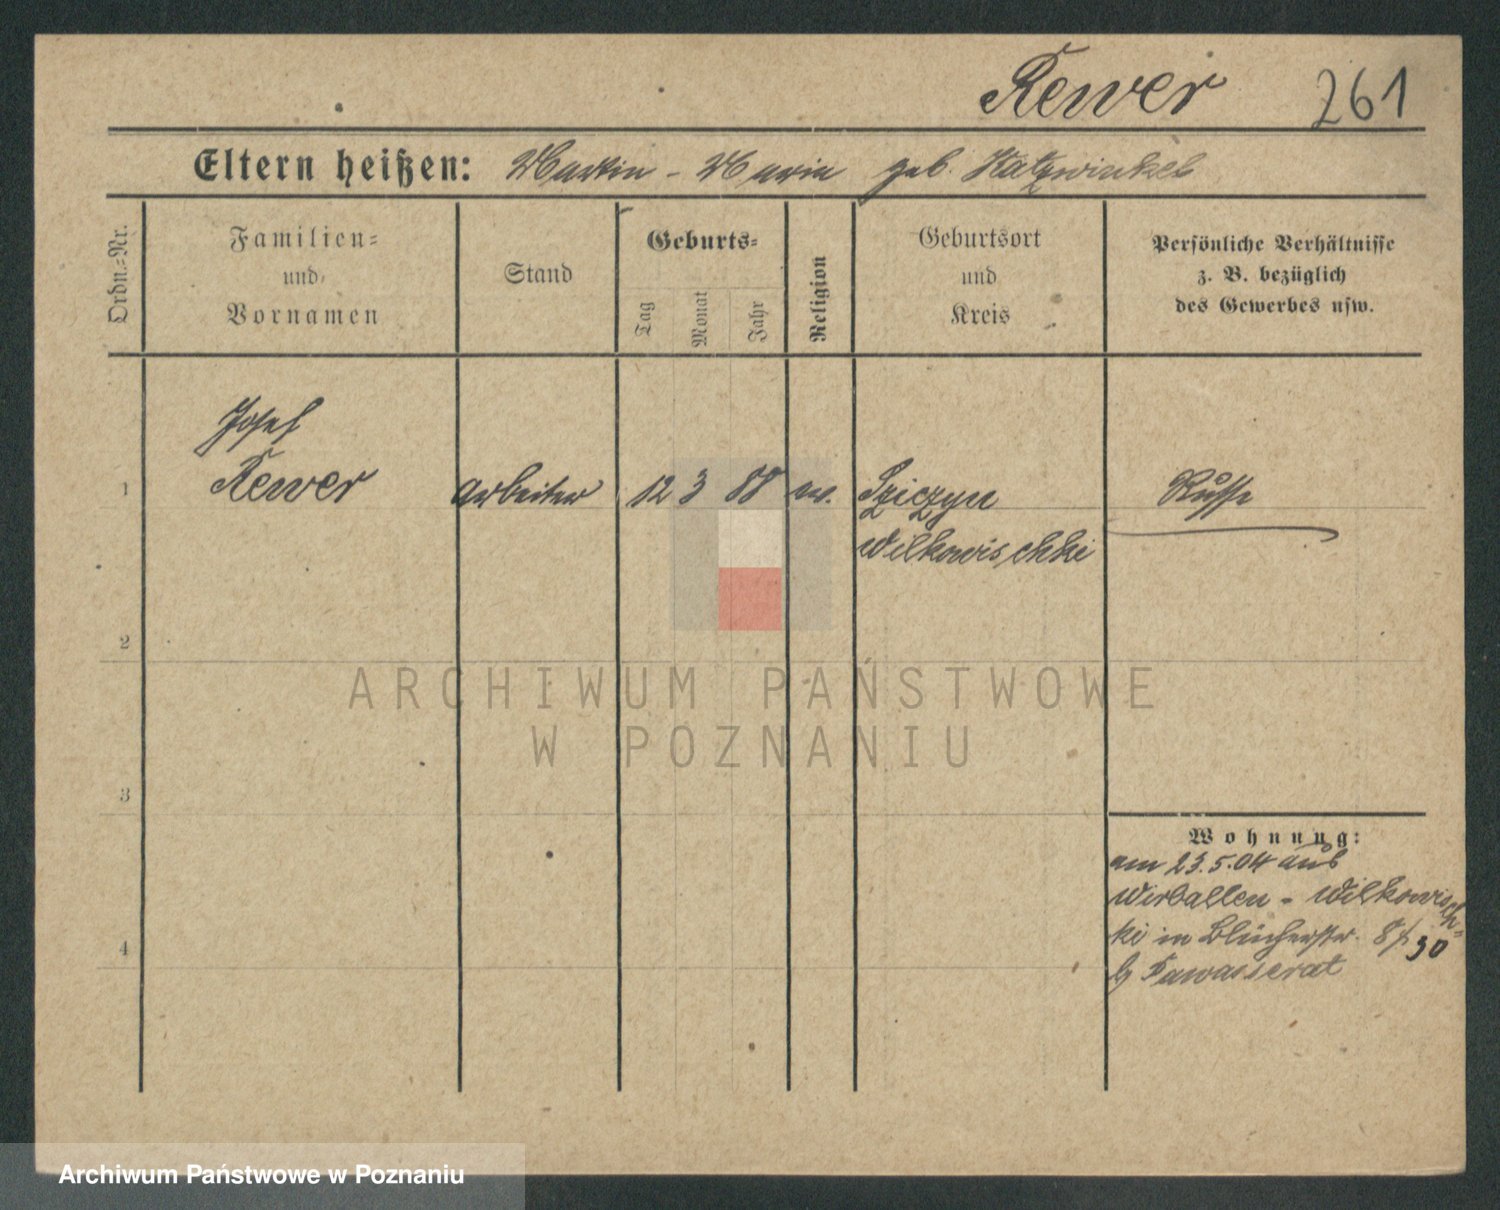 Rewer 261
Eltern heißen: Martin - Maria geb. Hatzwinkel
Ordn.=Nr.
Familien=
und
Vornamen
Stand
Geburts=
Tag
Monat
Jahr
Religion
Geburtsort
und
Kreis
Persönliche Verhältnisse
z. B. bezüglich
des Gewerbes usw.
Josef
1 Rewer Arbeiter 12 3 88 Sziczyn Russe
Wilkowischki
2
ARCHIWUM PAŃSTWOWE
W POZNANIU
3
Wohnung:
am 23.5.04 aus
Wirballen - Wilkowisch=
4 ki in Blücherstr. 8/30
b/ Pawasserat
Archiwum Państwowe w Poznaniu